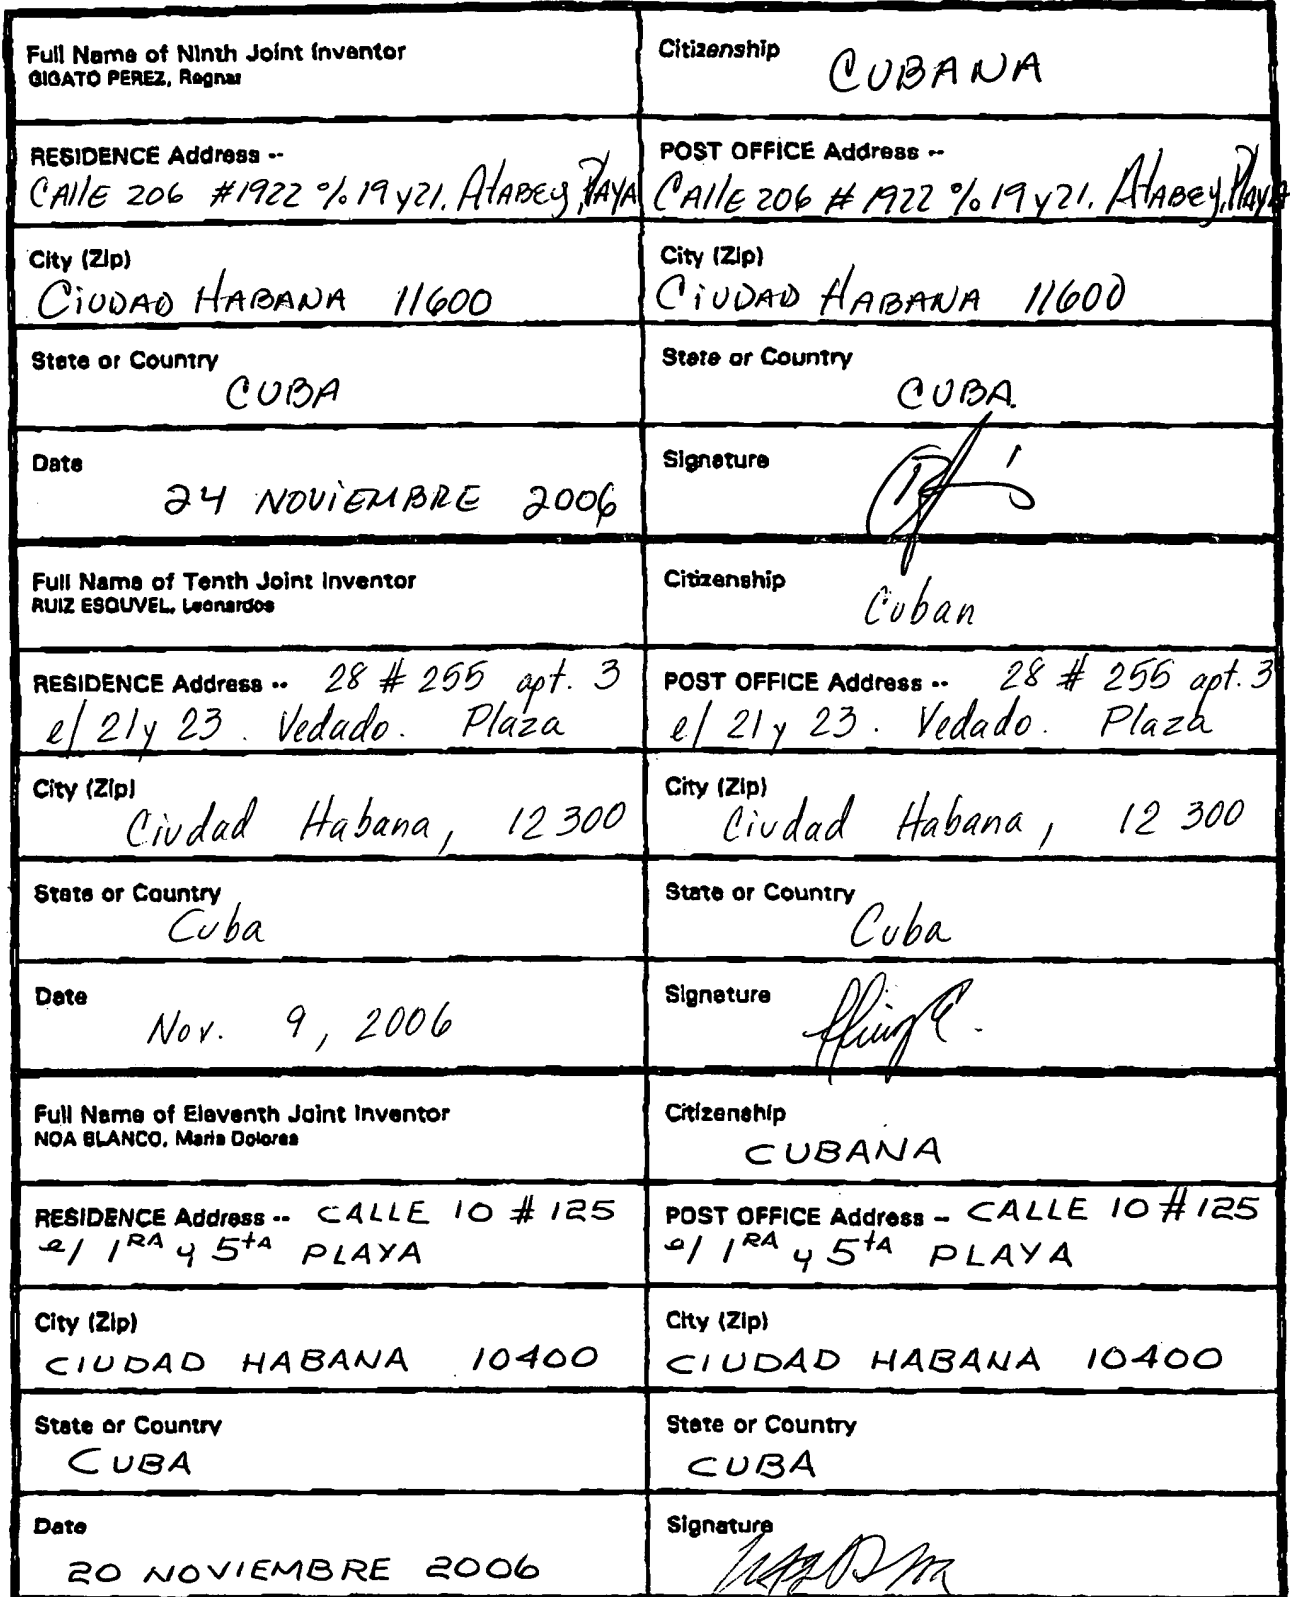 Full Name of Ninth Joint Inventor
GIGATO PEREZ, Ragnar
Citizenship
CUBANA
RESIDENCE Address --
CAllE 206 #1922 % 19 y 21. AtABEy, PlAYA
POST OFFICE Address --
CAllE 206 # 1922 % 19 y 21. AtABEy, PlAYA
City (Zip)
CiUDAD HABANA 11600
City (Zip)
CiUDAD HABANA 11600
State or Country
CUBA
State or Country
CUBA.
Date
24 NOViEMBRE 2006
Signature
Full Name of Tenth Joint Inventor
RUIZ ESQUVEL, Leonardos
Citizenship
Cuban
RESIDENCE Address -- 28 # 255 apt. 3
e/ 21 y 23. Vedado. Plaza
POST OFFICE Address -- 28 # 255 apt. 3
e/ 21 y 23. Vedado. Plaza
City (Zip)
Ciudad Habana, 12 300
City (Zip)
Ciudad Habana, 12 300
State or Country
Cuba
State or Country
Cuba
Date
Nov. 9, 2006
Signature
Full Name of Eleventh Joint Inventor
NOA BLANCO, Maria Dolores
Citizenship
CUBANA
RESIDENCE Address -- CALLE 10 # 125
e/ 1RA y 5tA PLAYA
POST OFFICE Address -- CALLE 10 # 125
e/ 1RA y 5tA PLAYA
City (Zip)
CIUDAD HABANA 10400
City (Zip)
CIUDAD HABANA 10400
State or Country
CUBA
State or Country
CUBA
Date
20 NOVIEMBRE 2006
Signature